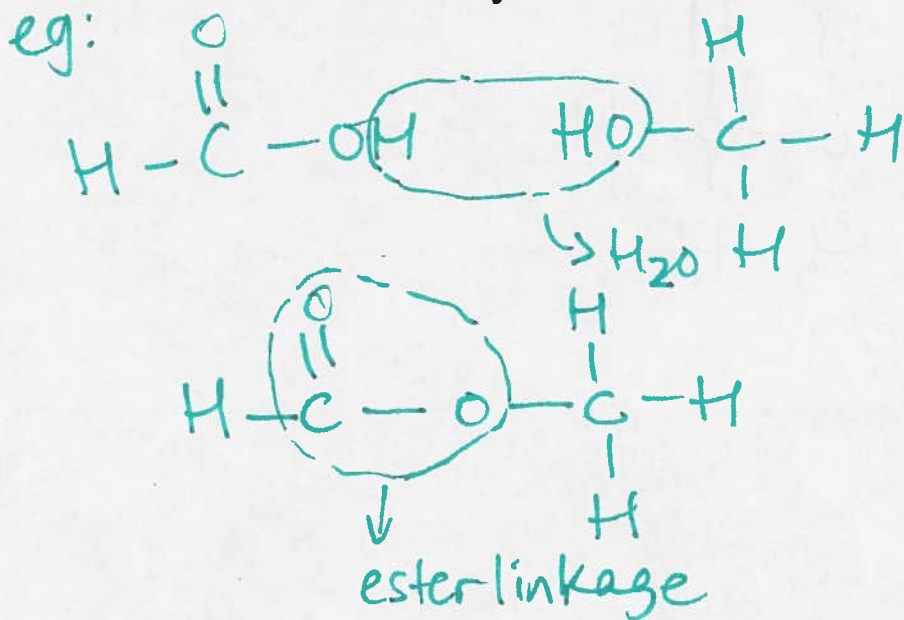 eg:
O H
||
H - C - OH HO - C - H
↳ H2O H
O H
||
H - C - O - C - H
H
ester linkage